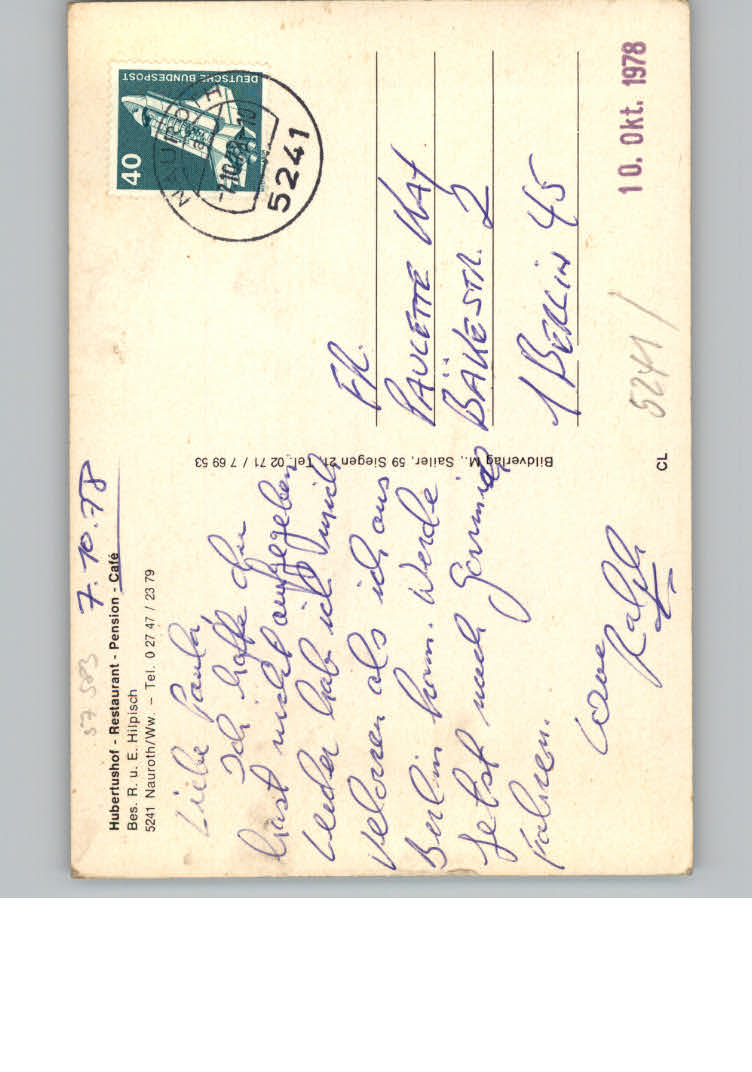 Hubertushof - Restaurant - Pension - Café
Bes. R. u. E. Hilpisch
5241 Nauroth/Ww. – Tel. 0 27 47 / 23 79
57 583
7.10.78
Liebe Paula,
Ich hoffe du
hast nicht aufgegeben
Leider hab ich mich
veloren als ich aus
Berlin kam. Werde
jetst nach
fahren.
Love
Ralph
Bildverlag M. Sailer, 59 Siegen 21, Tel. 02 71 / 7 69 53
CL
DEUTSCHE BUNDESPOST
40
NAUROTH
-7.10.78-10
5241
FR.
PAULETTE KAY
BÄKESTR. 2
1 BERLIN 45
10. Okt. 1978
5241 /